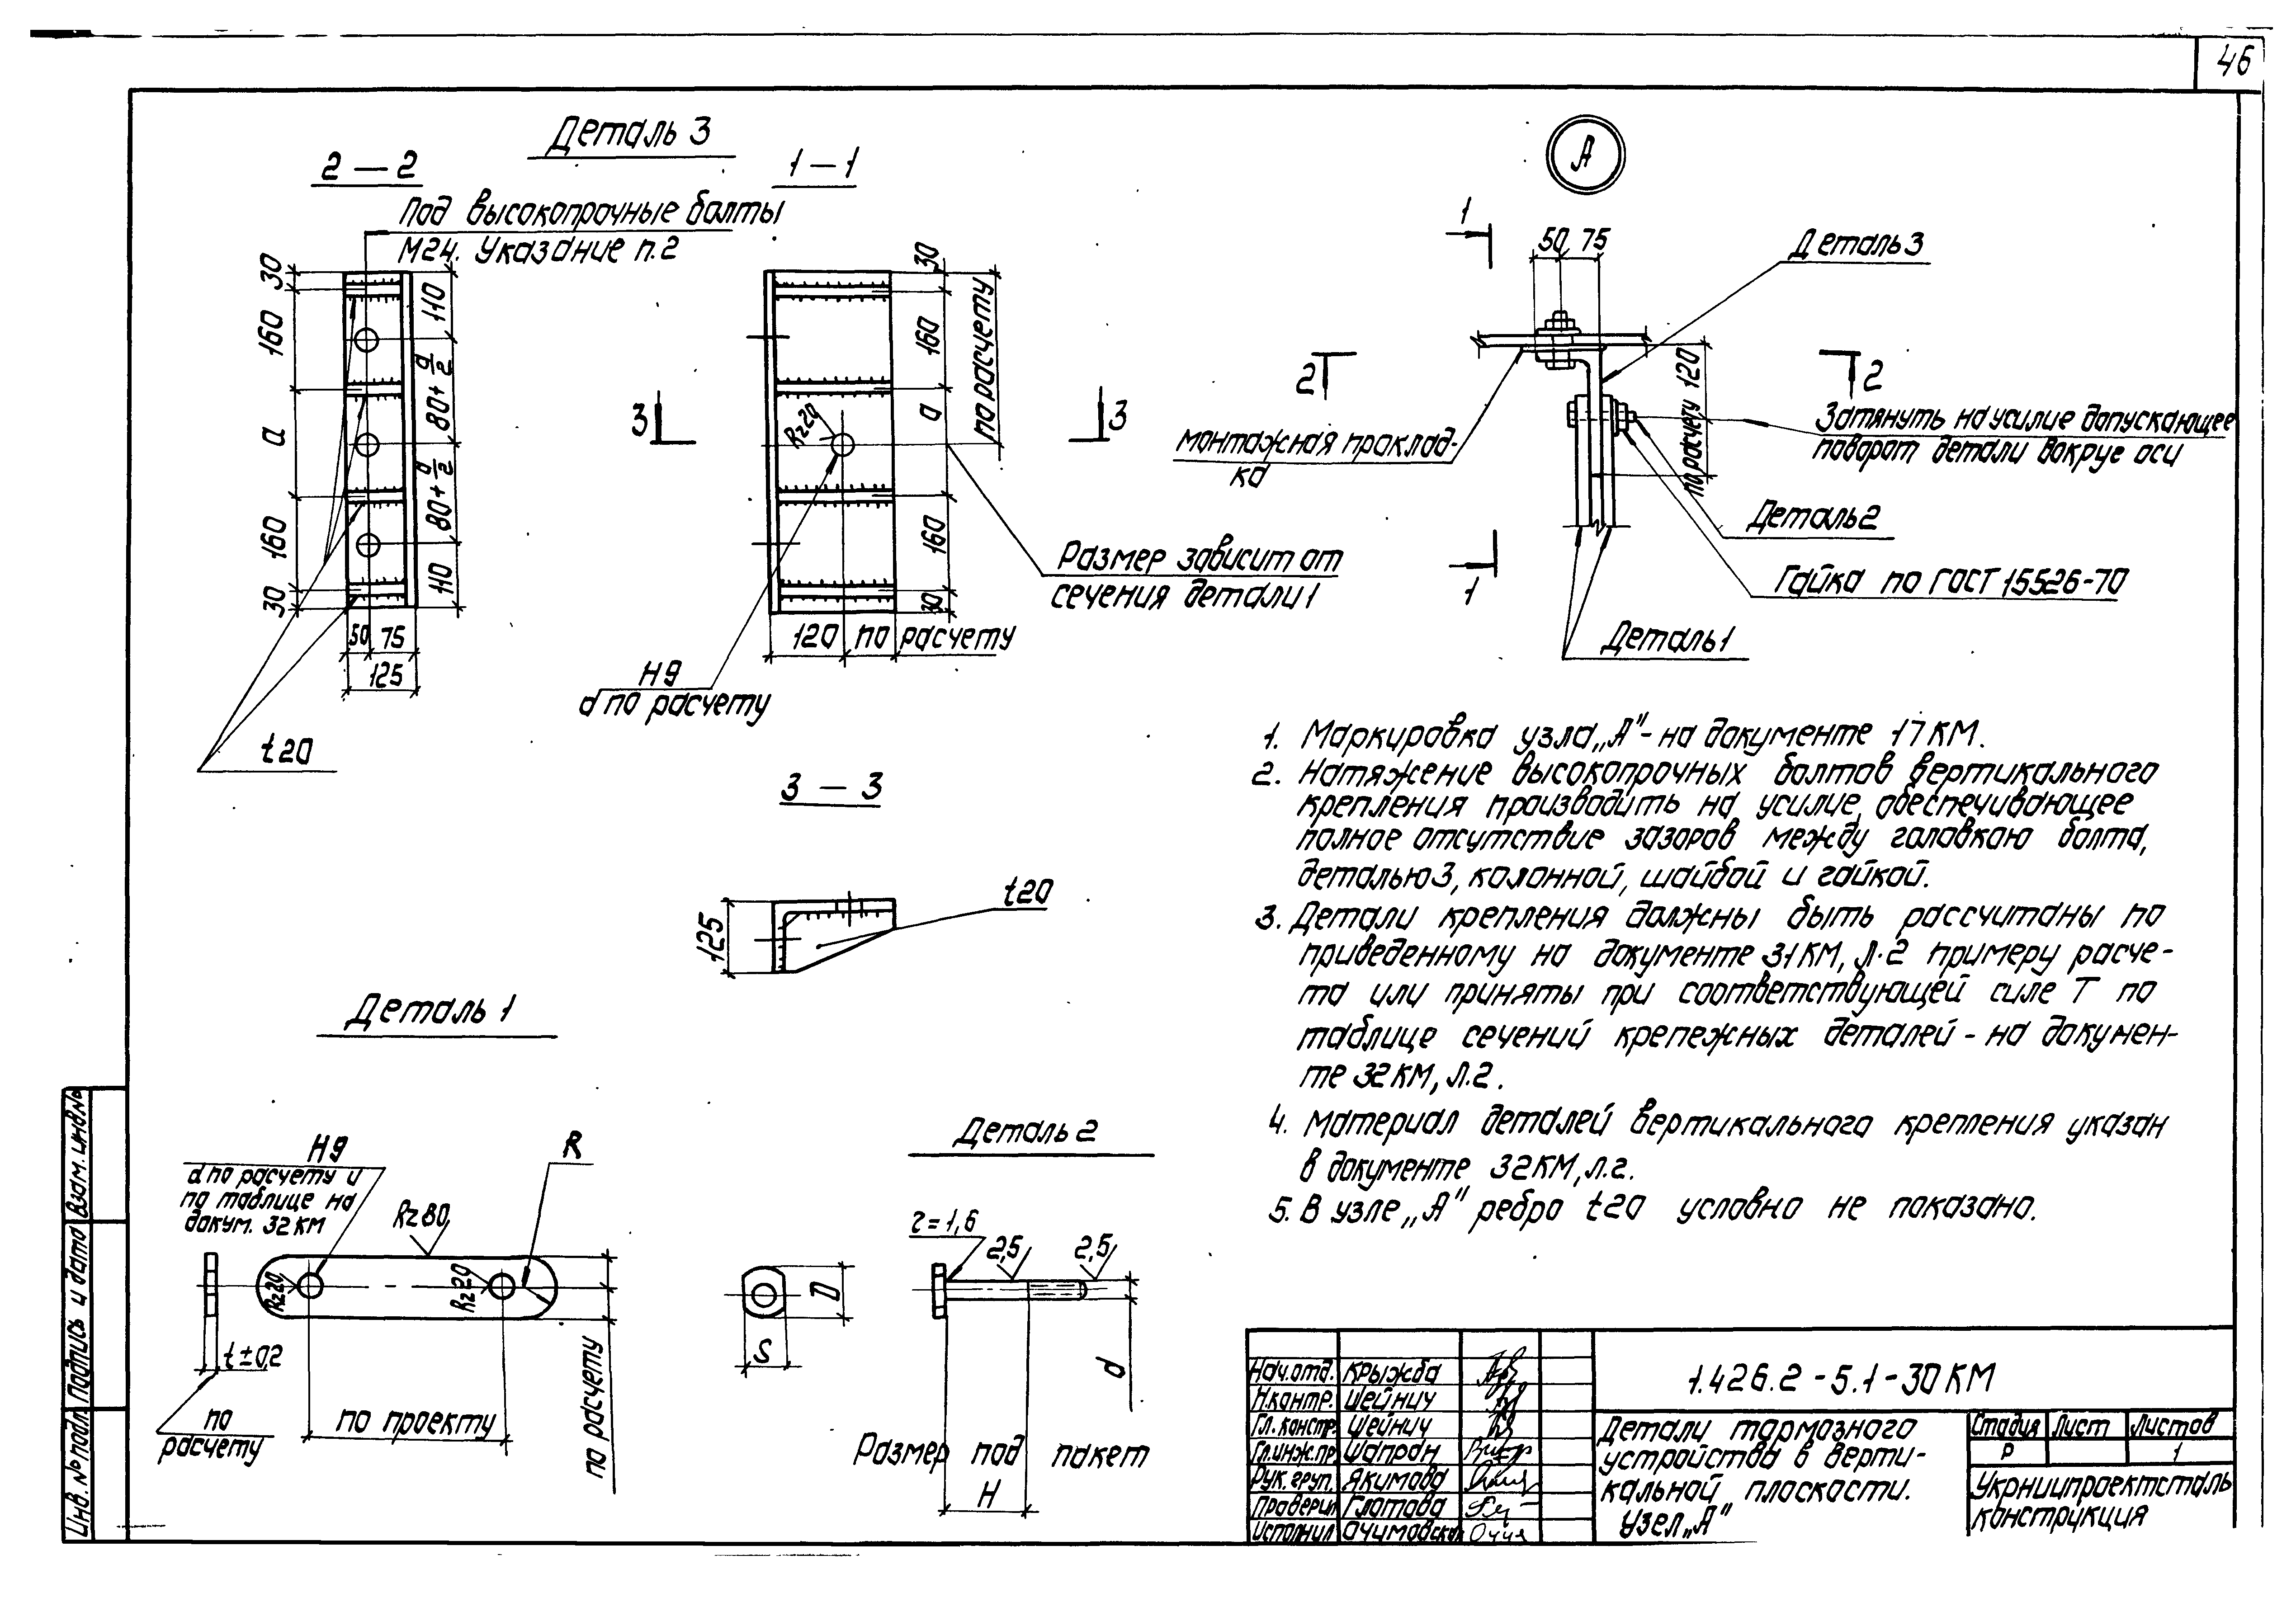 46
Деталь 3
2 — 2
1 — 1
Под высокопрочные болты
М24. Указание п.2
30
160
a
160
30
110
80+a/2
80+a/2
110
50
75
125
t20
30
160
a
160
30
по расчету
Rz20
3
3
120
по расчету
Н9
d по расчету
Размер зависит от
сечения детали 1
А
1
50
75
Деталь 3
2
2
120
по расчету
монтажная проклад-
ка
Затянуть на усилие допускающее
поворот детали вокруг оси
Деталь 2
Гайка по ГОСТ 15526-70
1
Деталь 1
3 — 3
125
t20
1. Маркировка узла „А" - на документе 17КМ.
2. Натяжение высокопрочных болтов вертикального
крепления производить на усилие, обеспечивающее
полное отсутствие зазоров между головкою болта,
деталью 3, колонной, шайбой и гайкой.
3. Детали крепления должны быть рассчитаны по
приведенному на документе 31КМ, л.2 примеру расче-
та или приняты при соответствующей силе Т по
таблице сечений крепежных деталей - на докумен-
те 32КМ, л.2.
4. Материал деталей вертикального крепления указан
в документе 32КМ, л.2.
5. В узле „А" ребро t20 условно не показано.
Деталь 1
Н9
d по расчету и
по таблице на
докум. 32КМ
Rz80
R
Rz20
Rz20
t±0,2
по
расчету
по проекту
по расчету
Деталь 2
D
S
r=1,6
2,5
2,5
d
Размер под пакет
H
Взам. инв. №
Подпись и дата
Инв. № подл.
Нач. отд. Крыжба
Н.контр. Шейнич
Гл. констр. Шейнич
Гл.инж.пр. Шапран
Рук. груп. Якимова
Проверил Глотова
Исполнил
1.426.2-5.1-30КМ
Детали тормозного
устройства в верти-
кальной плоскости.
Узел „А"
Стадия Лист Листов
Р 1
Укрниипроектсталь
конструкция